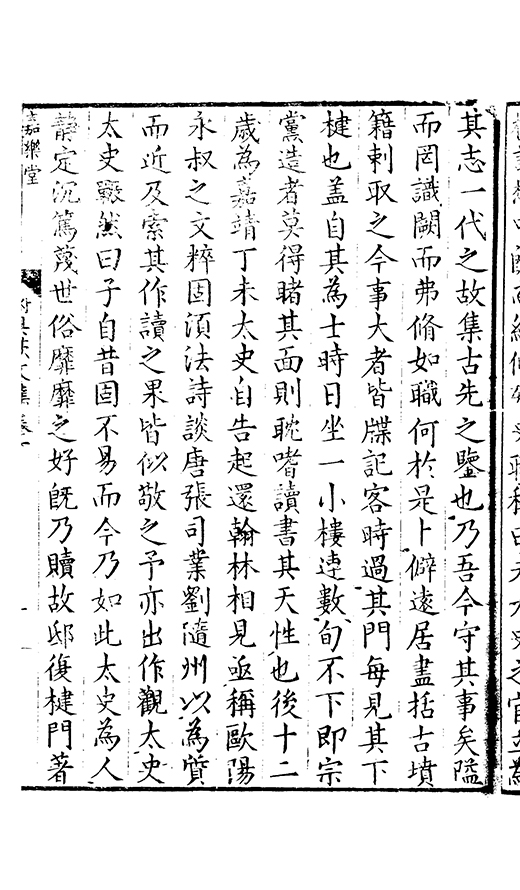 其志一代之故集古先之鑒也乃吾今守其事矣隘
而罔識闕而弗脩如職何於是卜僻遠居盡括古墳
籍剌取之今事大者皆牒記客時過其門每見其下
楗也盖自其為士時日坐一小樓連數旬不下即宗
黨造者莫得睹其面則耽嗜讀書其天性也後十二
歲為嘉靖丁未太史自告起還翰林相見亟稱歐陽
永叔之文粹固湏法詩談唐張司業劉隨州以為質
而近及索其作讀之果皆似敬之予亦出作觀太史
太史囅然曰子自昔固不易而今乃如此太史為人
靜定沉篤蔑世俗靡靡之好旣乃贖故邸復楗門著
嘉樂堂